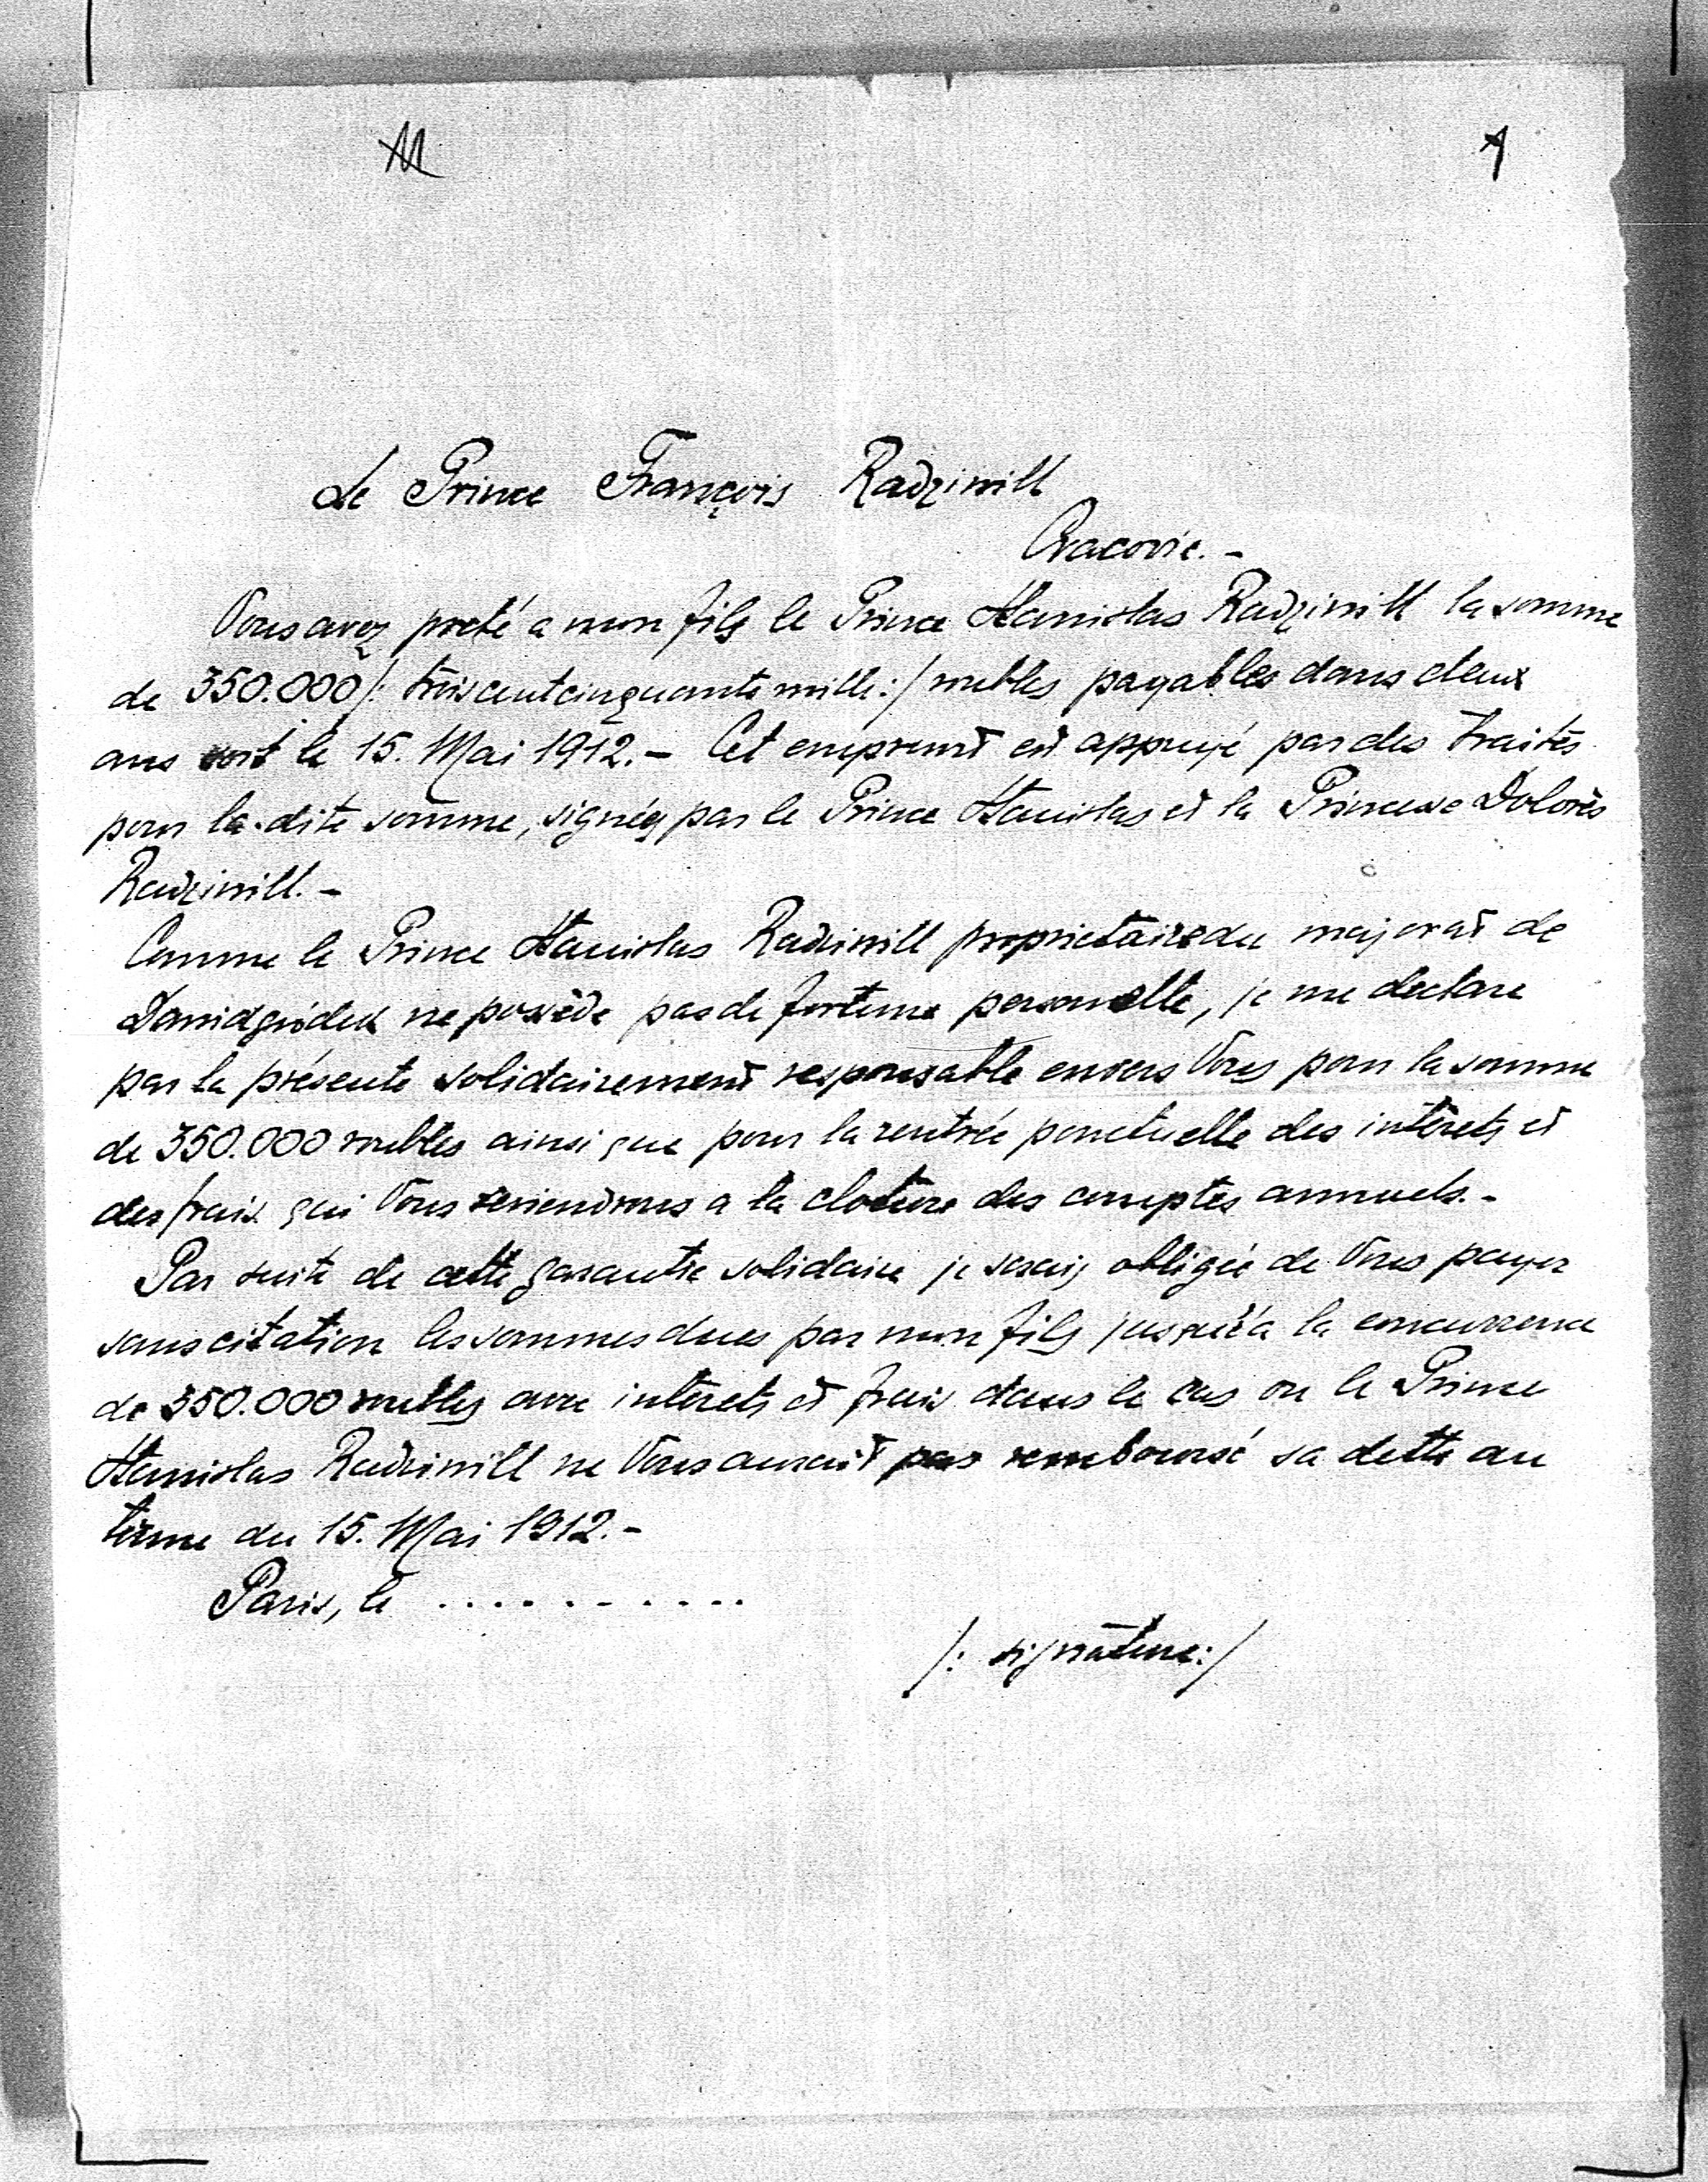 1
Le Prince François Radziwill
Cracovie. -
Vous avez preté a mon fils le Prince Stanislas Radziwill la somme
de 350.000 /: trois cent cinquante mille :/ roubles payables dans deux
ans soit le 15. Mai 1912. - Cet emprunt est appuyé par des traités
pour la dite somme, signés par le Prince Stanislas et la Princesse Dolorès
Radziwill. -
Comme le Prince Stanislas Radziwill proprietaire du majorat de
Dawidgródek ne possède pas de fortune personnelle, je me declare
par la présente solidairement responsable envers Vous pour la somme
de 350.000 roubles ainsi que pour la rentrée ponctuelle des intèrets et
des frais qui Vous reviendrons a la cloture des comptes annuels. -
Par suite de cette garantie solidaire je serais obligée de Vous payer
sans citation les sommes dues par mon fils jusqu'à la concurrence
de 350.000 roubles avec intèrets et frais dans le cas ou le Prince
Stanislas Radziwill ne Vous aurait pas remboursé sa dette au
terme du 15. Mai 1912. -
Paris, le ...........
/: signature :/